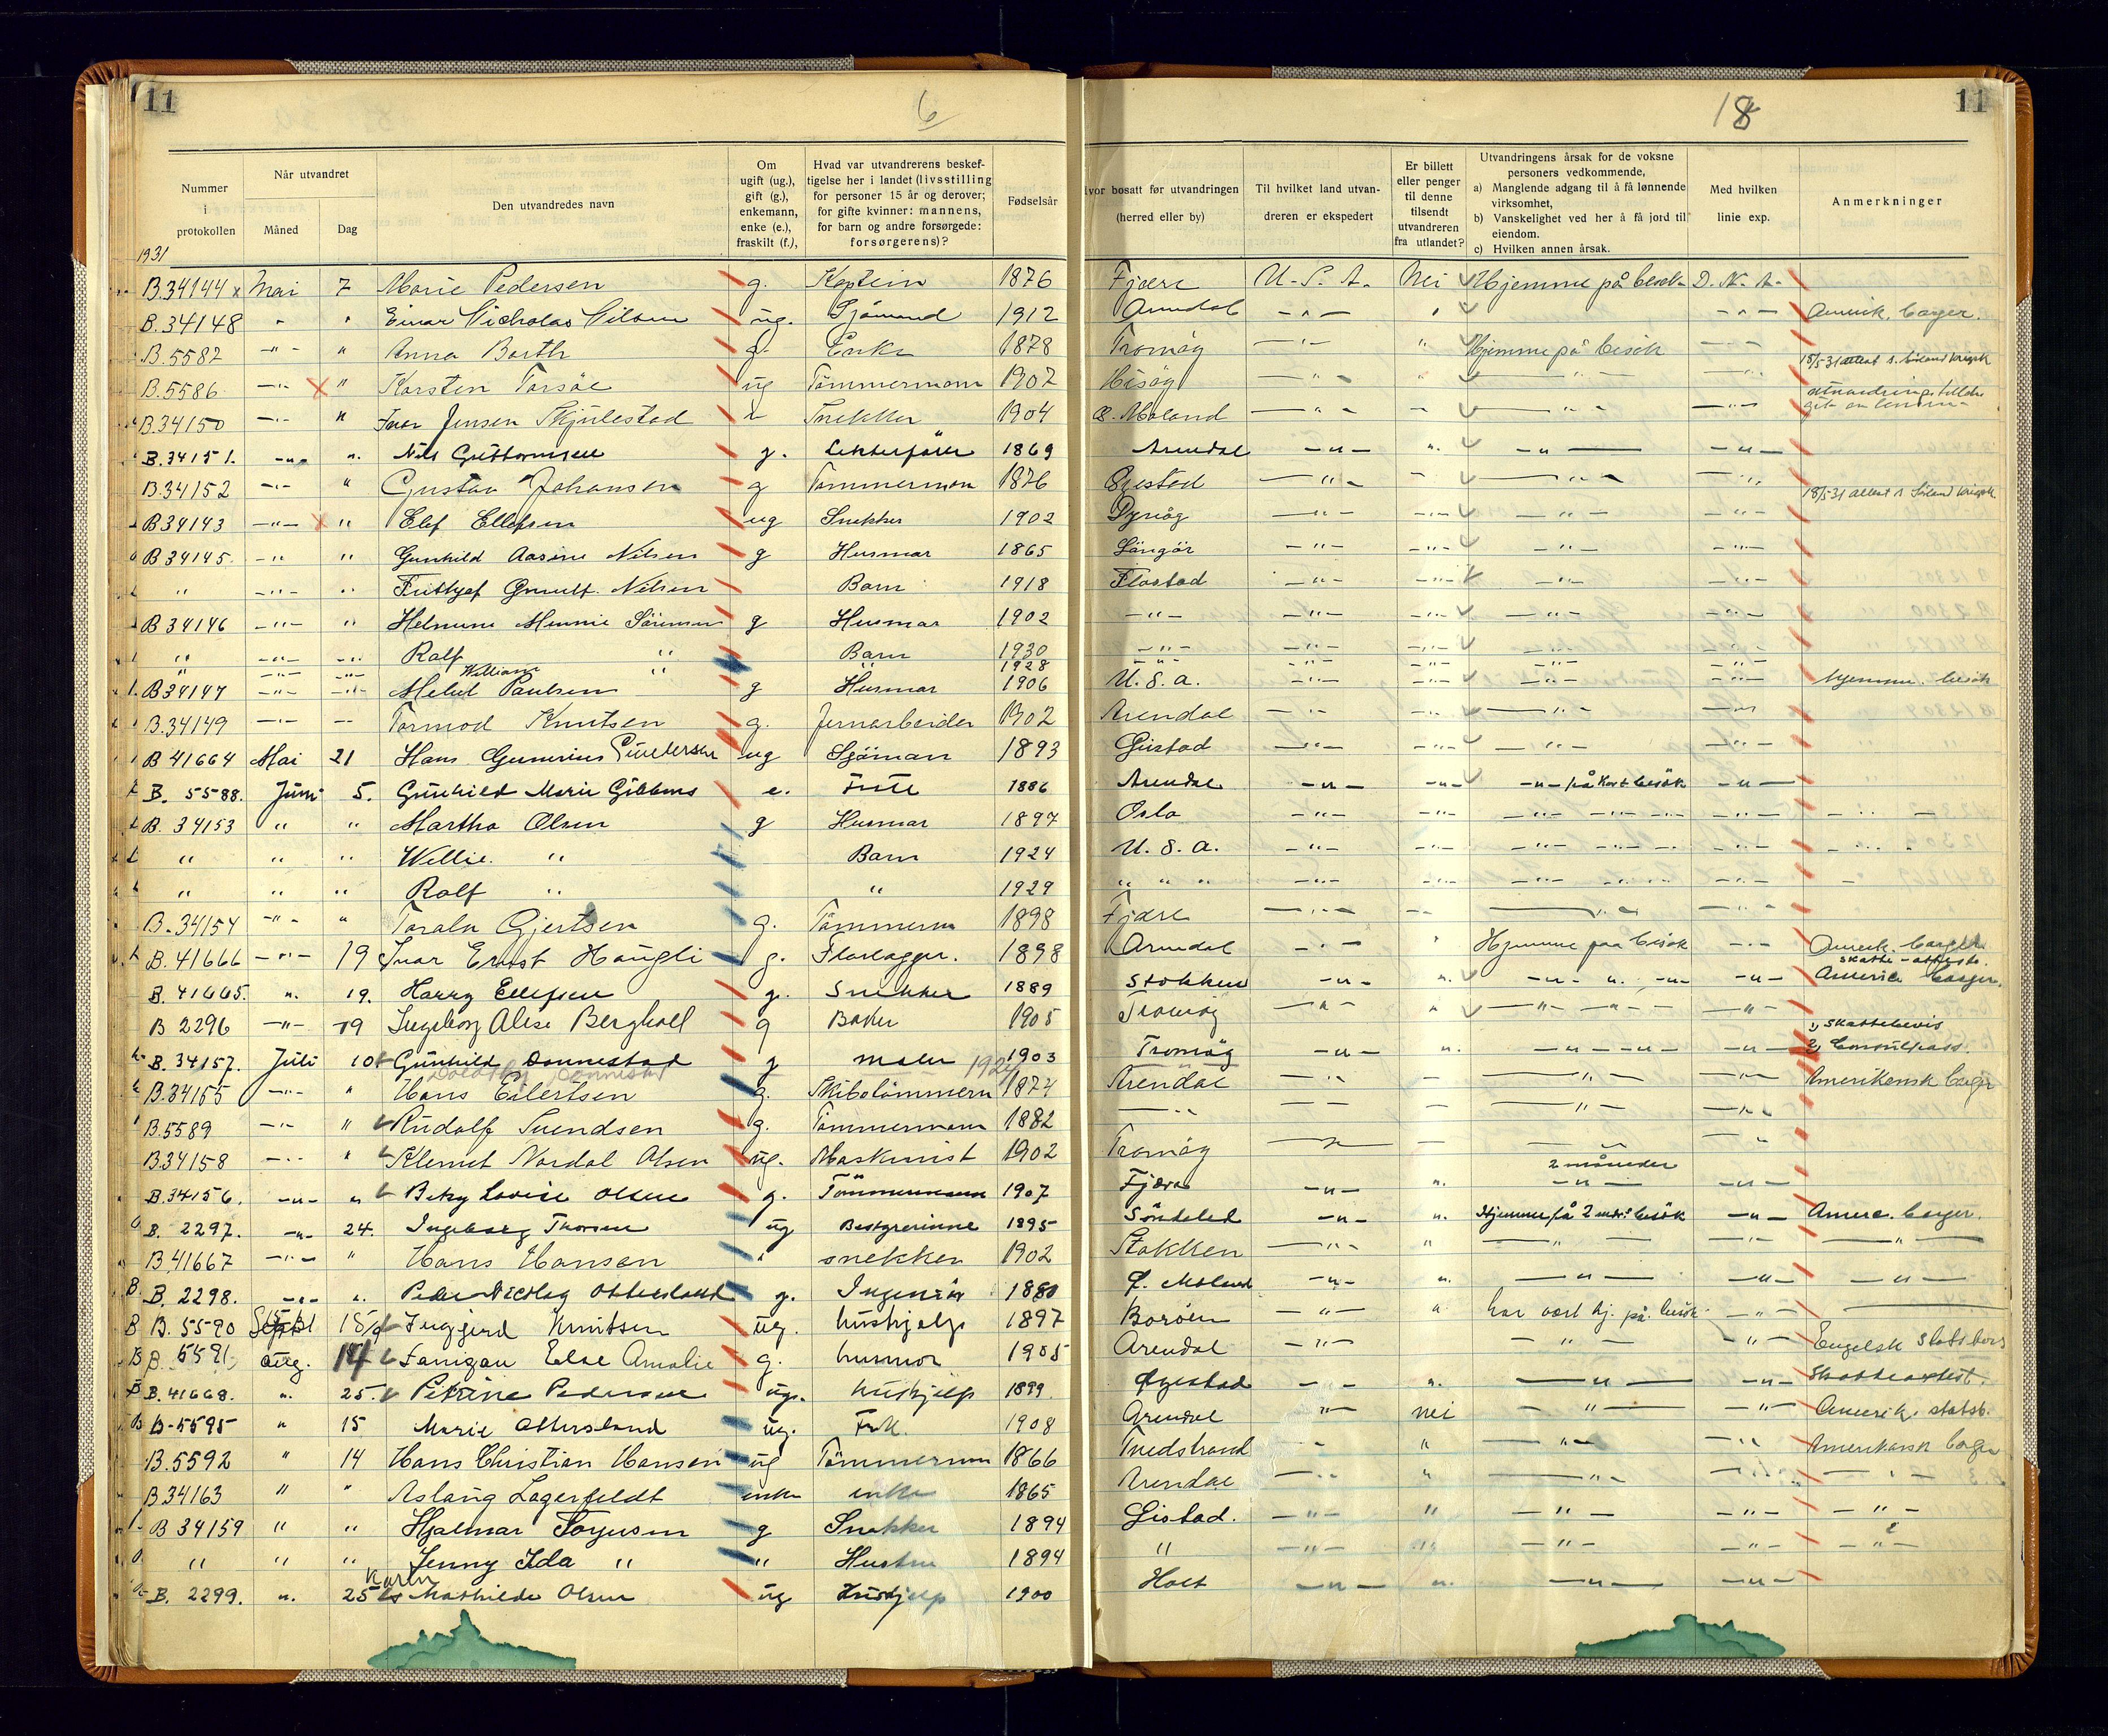 11
6
18
11
Nummer i protokollen
Når utvandret
Måned
Dag
Den utvandredes navn
Om ugift (ug.), gift (g.), enkemann, enke (e.), fraskilt (f.),
Hvad var utvandrerens beskef-
tigelse her i landet (livsstilling
for personer 15 år og derover;
for gifte kvinner: mannens,
for barn og andre forsørgede:
forsørgerens)?
Fødselsår
vor bosatt før utvandringen
(herred eller by)
Til hvilket land utvan-
dreren er ekspedert
Er billett eller penger til denne tilsendt utvandreren fra utlandet?
Utvandringens årsak for de voksne
personers vedkommende,
a) Manglende adgang til å få lønnende virksomhet,
b) Vanskelighet ved her å få jord til eiendom.
c) Hvilken annen årsak.
Med hvilken
linie exp.
Anmerkninger
1931
B.34144 x Mai 7 Marie Pedersen g. Kaptein 1876 Fjære U.S.A. Nei Hjemme på besøk D.N.A.
B.34148 " " Einar Nicholas Nilsen ug. Sjømand 1912 Arendal -"- " -"- Amerik. borger.
B.5582 -"- " Anna Barth g. Enke 1878 Tromøy -"- " Hjemme på besøk -"-
B.5586 -"- x " Karsten Torsöe ug Tømmermann 1907 Hisøy -"- " -"- -"- 18/5-31 attest
B.34150 -"- " Ivar Jensen Skjulestad " Snekker 1904 Ø. Moland -"- " -"- -"-
B.34151. -"- ". Nils Guttormsen g. Lekterfører 1869 Arendal -"- ". -"- -"-
B.34152 -"- " Gustav Johansen g Tømmerman 1876 Øiestad -"- " -"- -"-
B34143 -"- x " Elef Ellefsen ug Snekker 1902 Dypvåg -"- -"- -"- -"- 18/5-31 attest
B34145. -"- " Gunhild Aasine Nilsen g Husmor 1865 Lyngör -"- -"- -"- -"-
" -"- " Fritjof Nilsen Barn 1918 Flostad -"- -"- -"- -"-
B34146 -"- " Helmine Minnie Sörensen g Husmor 1902 -"- -"- -"- -"- -"-
" -"- -"- Ralf " Barn 1930 -"- -"- -"- -"- -"-
" -"- -"- William " " 1928 -"- -"- -"- -"- -"-
B34147 -"- -"- Paulsen g Husmor 1906 U.S.A. -"- -"- -"- -"- hjemme besøk
B.34149 -"- -- Tormod Knutsen g. Jernarbeider 1902 Arendal -"- -"- -"- -"-
B41664 Mai 21 Hans Gumerius Gundersen ug Sjöman 1893 Gjestad -"- -"- -"- -"-
B. 5588. Juni 5. Gunhild Marie Gibbons e. 1886 Arendal -"- -"- -"- på kort besök -"-
B. 34153 " " Martha Olsen g Husmor 1897 Oslo -"- -"- -"- -"- -"- -"-
" " " Willie. " Barn 1924 U.S.A. -"- -"- -"- -"- -"-
" " " Ralf " " 1929 " " " -"- -"- -"- -"- -"-
B.34154 -"- " Toralv Gjertsen g. Tømmerm 1898 Fjære -"- -- -"- -"-
B.41666 -"- 19 Ivar Ernst Haugli g. 1898 Arendal -"- " Hjemme paa besøk -"- Amerik. borger.
skatte-attest.
B. 41665. ". 19. Harry Ellefsen g. Snekker 1889 Stokken -"- ". -"- ". -"- -"- America borger.
B 2296 -"- 19 Ingeborg Alise Berghall g Baker 1905 Tromøy -"- " -"- -"- -"-
1) skattebevis
B. 34157. Juli 10 Gunhild Dannestad g maler 1903 Tromøy -"- ". -"- -"- -"- 2) Consulpass.
Dorothy Dannestad 1924
B.34155 -"- " Hans Eilertsen g. Skibstömmerm 1874 Arendal -"- - -"- -"- Amerikansk borger
B.5589 -"- " Rudolf Svendsen g. Tømmermann 1882 -"- -- - -"- -"-
B.34158 -"- " Klemet Nordal Olsen ug. Maskinist 1902 Tromøy -"- - -"- -"-
2 måneder
B.34156. -"- " Betsy Lovise Olsen g. Tömmermann 1907 Fjære -"- ". -"- -"-
B. 2297. -"- 24. Ingeborg Thorsen ug Bestyrerinne 1895 Söndeled -"- ". Hjemme på 2 mdr. besök -"- Amerc. borger.
B.41667 -"- " Hans Hansen " snekker 1902 Stokken -"- " -"- -"- -"-
B. 2298. -"- ". Peder Nicolay g. Ingeniör 1880 Ø. Moland -"- ". -"- -"- -"-
B. 5590 Sept 15/9 Inggjerd Knutsen ug. hushjelp 1897 Borøen -"- " har vært hj. på besøk -"-
B. 5591. aug. 14 Fanigan Else Amalie g. husmor 1905 Arendal -"- -"- -"- Engelsk statsborg
B. 41668. ". 25. Petrine Pedersen ug. hushjelp 1899. Øyestad -"- ". -"- -"- Skatteattest.
B-5595 " 15 Marie Ottersland ug. Frk. 1908 Arendal -"- nei -"- -"- Amerik. statsb.
B.5592 " 14 Hans Christian Hansen ug Tømmermann 1866 Tvedstrand " " -"- -"- Amerikansk borger
B.34163 " " Aslaug Lagerfeldt enke enke 1865 Arendal -"- " -"- -"- -"-
B 34159 " " Hjalmar Torjusen g Snekker 1894 Gistad. -"- " -"- -"- -"-
" " " Jenny Ida " " Hustru 1894 " -"- " -"- -"- -"-
Karen
B. 2299. ". 25 Mathilde Olsen ug Hushjelp 1900 Holt -"- ". -"- -"-